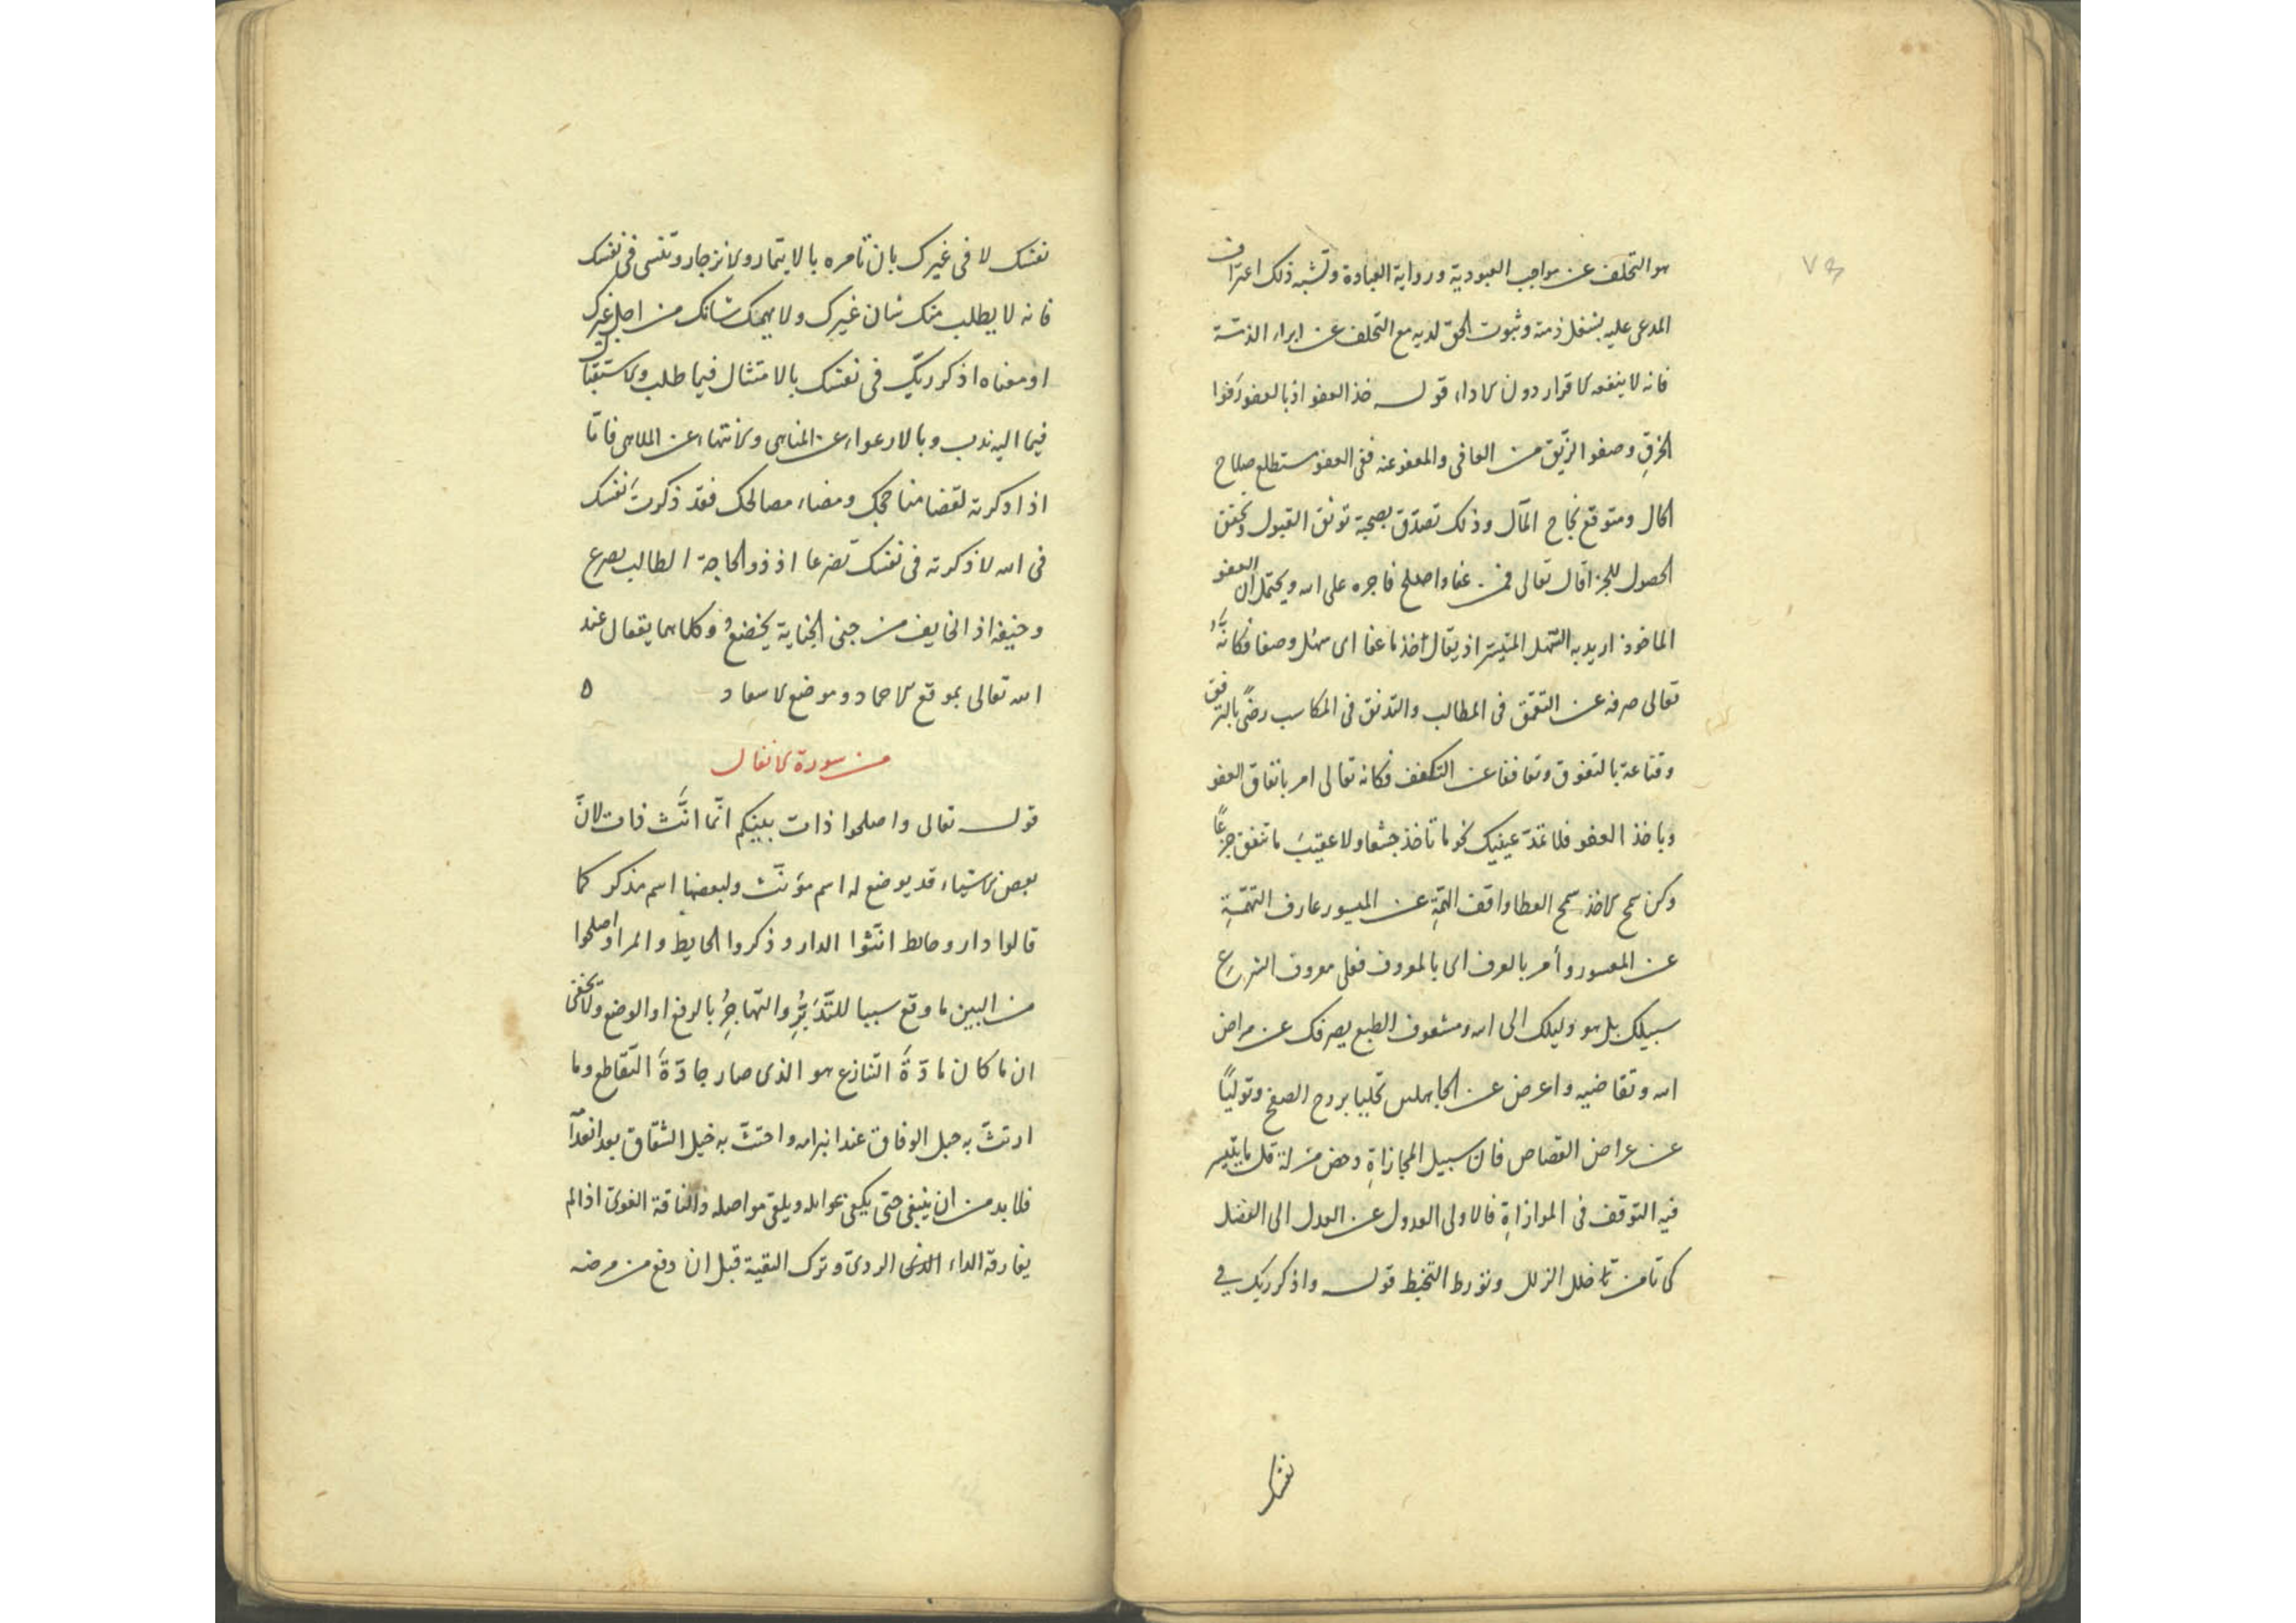 هو التخلف عن مواجب العبودية ورواية العبادة وتشبه ذلك اعتراف
المدعى عليه بشغل ذمته وثبوت الحق لديه مع التخلف عن ابراء الذمة
فانه لا ينفعه الاقرار دون الاداء قوله خذ العفو اذ بالعفو رفوا
الخرق وصفو الرنق من العافى والمعفو عنه ففى العفو ستطلع صلاح
الحال ومتوقع نجاح المآل وذلك تصدق بصحبة توثق القبول وتحقق
الحصول للجزا قال تعالى فمن عفا واصلح فاجره على الله ويحتمل ان العفو
الماخوذ اريد به السهل المتيسر اذ يقال اخذ ما عفا اى سهل وصفا فكانه
تعالى صرفه عن التعمق فى المطالب والتدنق فى المكاسب رضى بالترفق
وقناعة بالتفوق وتعاففا عن التكفف فكانه تعالى امر بانفاق العفو
وباخذ العفو فلا تمد عينيك نحو ما تاخذ جشعا ولا عقيب ما تنفق جزعا
وكن سمح الاخذ سمح العطا واقف الهمة عن الميسور عارف التهمة
عن المعسور وأمر بالعرف اى بالمعروف فعلى معروف الشرع
سبيلك بل هو دليلك الى الله ومشعوف الطبع يصرفك عن مراض
الله وتقاضيه واعرض عن الجاهلين تحليا بروح الصفح وتوليا
عن عراض القصاص فان سبيل المجازاة دحض مزلة قل ما يتيسر
فيه التوقف فى الموازاة فالاولى العدول عن العدل الى الفضل
كى تامن خلل الزلل وتورط التخبط قوله واذكر ربك في
نفسك
نفسك لا فى غيرك بان تأمره بالايتمار والانزجار وتنسى فى نفسك
فانه لا يطلب منك شان غيرك ولا يهمك شانك من اجل غيرك
او معناه اذكر ربك فى نفسك بالامتثال فيما طلب والاستباق
فيما اليه ندب وبالارعواء عن المناهى والانتهاء عن الملاهى فاما
اذا ذكرته لقضا مناجحك ومضاء مصالحك فقد ذكرت نفسك
فى الله لا ذكرته فى نفسك تضرعا اذ ذو الحاجة الطالب يضرع
وخيفة اذ الخايف من جنى الجناية يخضع وكلاهما يقعان عند
الله تعالى بموقع الاحماد وموضع الاسعاد ٥
من سورة الانفال
قوله تعالى واصلحوا ذات بينكم انما انث ذات لان
بعض الاشياء قد يوضع له اسم مؤنث ولبعضها اسم مذكر كما
قالوا دار وحايط انثوا الدار وذكروا الحايط والمراد اصلحوا
من البين ما وقع سببا للتدبر والتهاجر بالرفع او الوضع ولا يخفى
ان ما كان مادة التنازع هو الذى صار جادة التقاطع وما
ارتث به حبل الوفاق عند انبرامه واحتث به خيل الشقاق بعد انعدا
فلا بد من ان ينبغى حتى يكفى عوامله ويلقى مواصله والناقة القوى اذا لم
يفارقه الداء الردى وترك البقية قبل ان دفع من مرضه